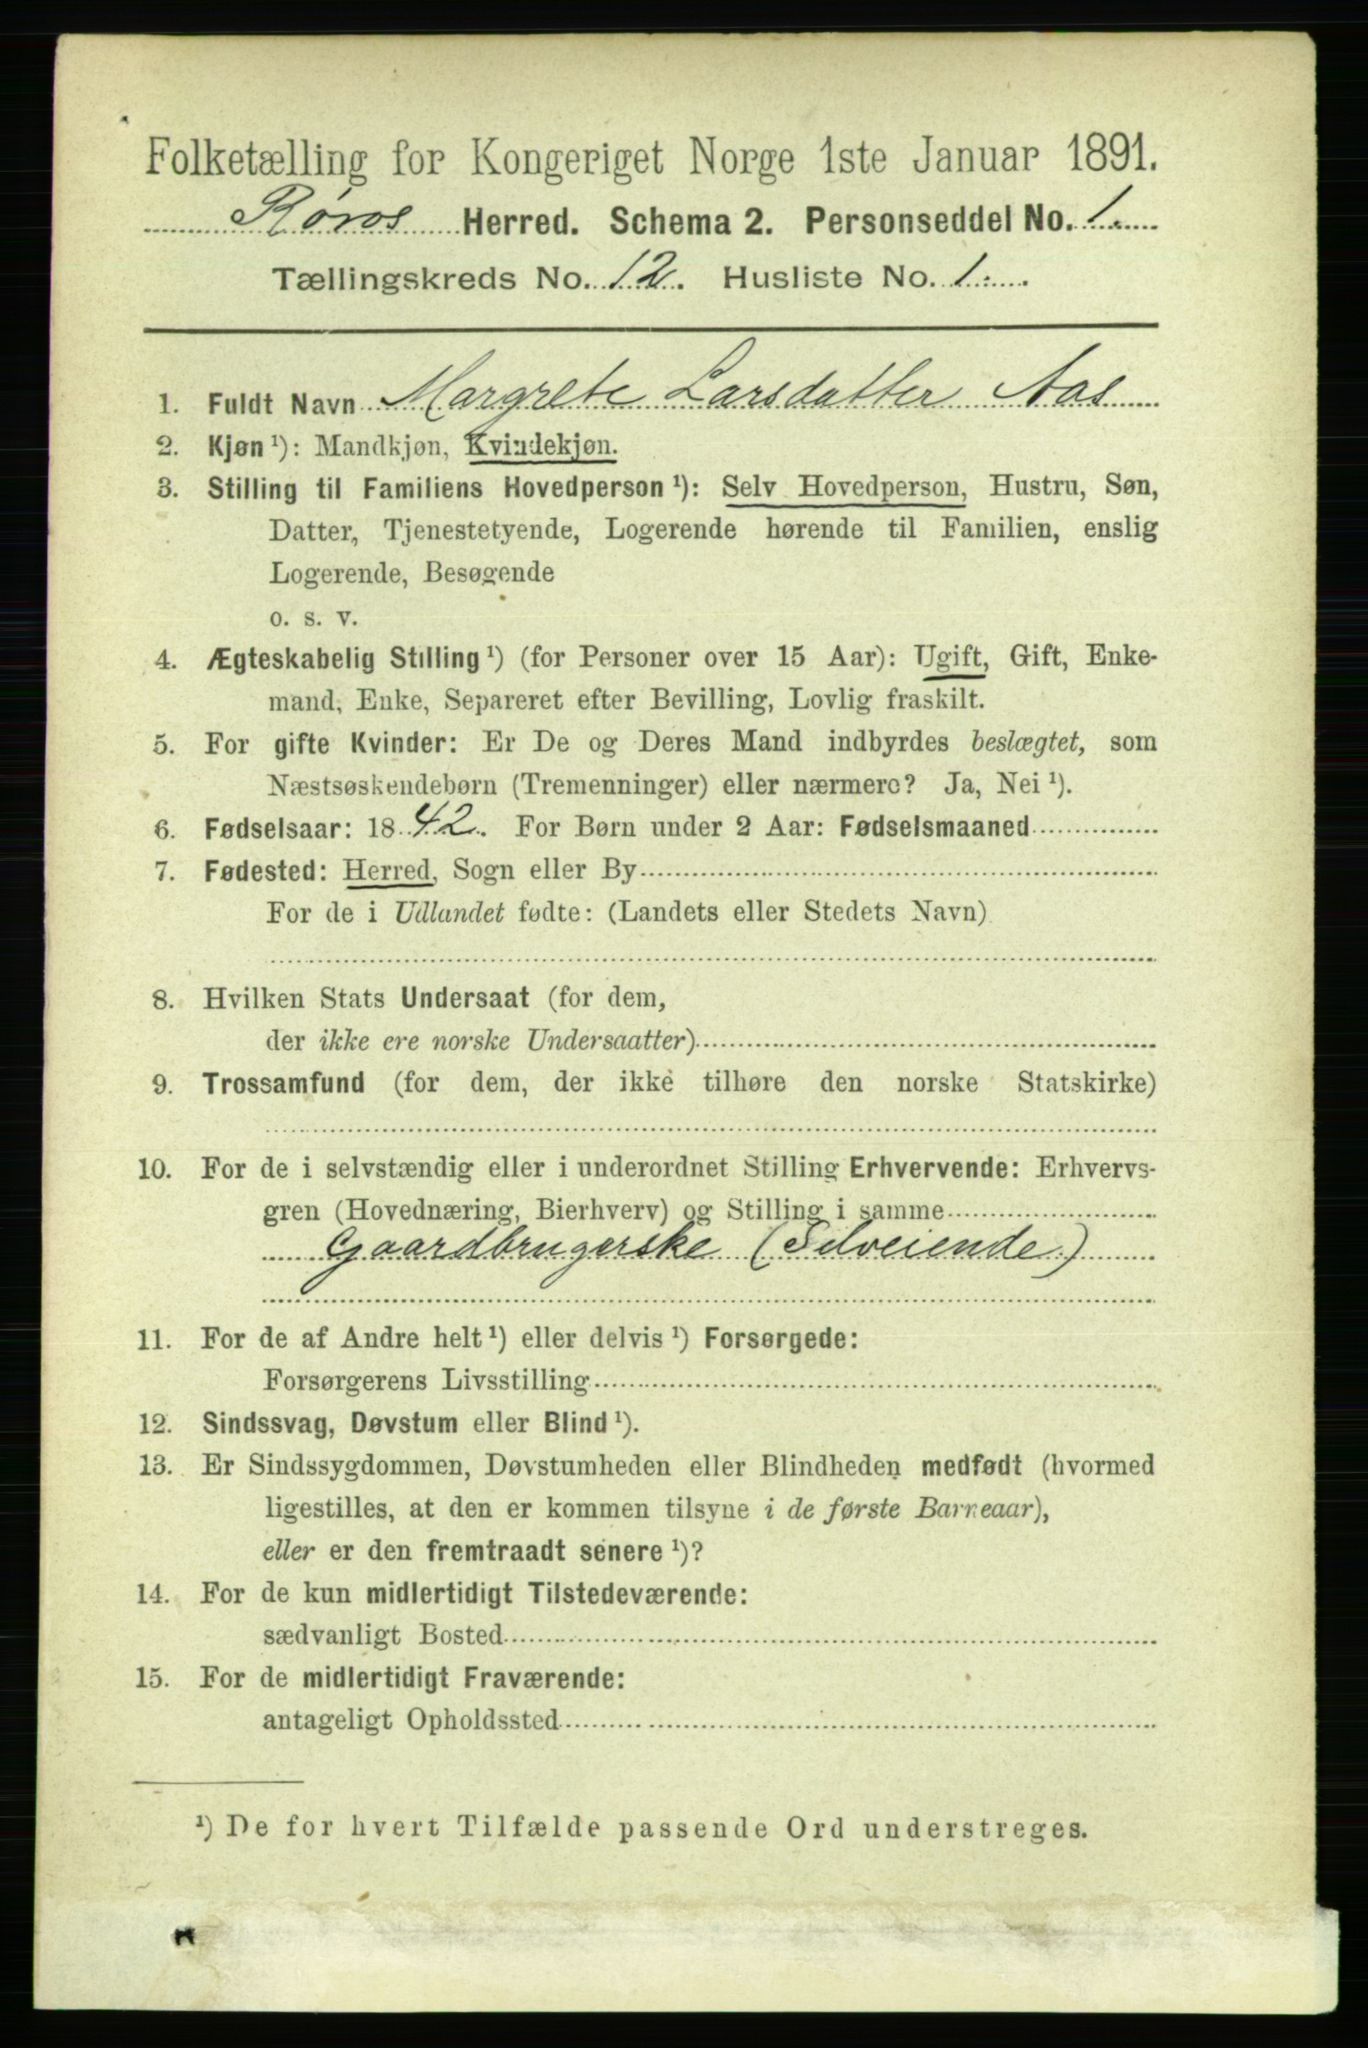 Folketælling for Kongeriget Norge 1ste Januar 1891.
Røros Herred. Schema 2. Personseddel No. 1.
Tællingskreds No. 12. Husliste No. 1.
1. Fuldt Navn Margrete Larsdatter Aas
2. Kjøn ¹): Mandkjøn, Kvindekjøn.
3. Stilling til Familiens Hovedperson ¹): Selv Hovedperson, Hustru, Søn,
Datter, Tjenestetyende, Logerende hørende til Familien, enslig
Logerende, Besøgende
o. s. v.
4. Ægteskabelig Stilling ¹) (for Personer over 15 Aar): Ugift, Gift, Enke-
mand, Enke, Separeret efter Bevilling, Lovlig fraskilt.
5. For gifte Kvinder: Er De og Deres Mand indbyrdes beslægtet, som
Næstsøskendebørn (Tremenninger) eller nærmere? Ja, Nei ¹).
6. Fødselsaar: 1842. For Børn under 2 Aar: Fødselsmaaned
7. Fødested: Herred, Sogn eller By
For de i Udlandet fødte: (Landets eller Stedets Navn)
8. Hvilken Stats Undersaat (for dem,
der ikke ere norske Undersaatter)
9. Trossamfund (for dem, der ikke tilhøre den norske Statskirke)
10. For de i selvstændig eller i underordnet Stilling Erhvervende: Erhvervs-
gren (Hovednæring, Bierhverv) og Stilling i samme
Gaardbrugerske (Selveiende)
11. For de af Andre helt ¹) eller delvis ¹) Forsørgede:
Forsørgerens Livsstilling
12. Sindssvag, Døvstum eller Blind ¹).
13. Er Sindssygdommen, Døvstumheden eller Blindheden medfødt (hvormed
ligestilles, at den er kommen tilsyne i de første Barneaar),
eller er den fremtraadt senere ¹)?
14. For de kun midlertidigt Tilstedeværende:
sædvanligt Bosted
15. For de midlertidigt Fraværende:
antageligt Opholdssted
¹) De for hvert Tilfælde passende Ord understreges.